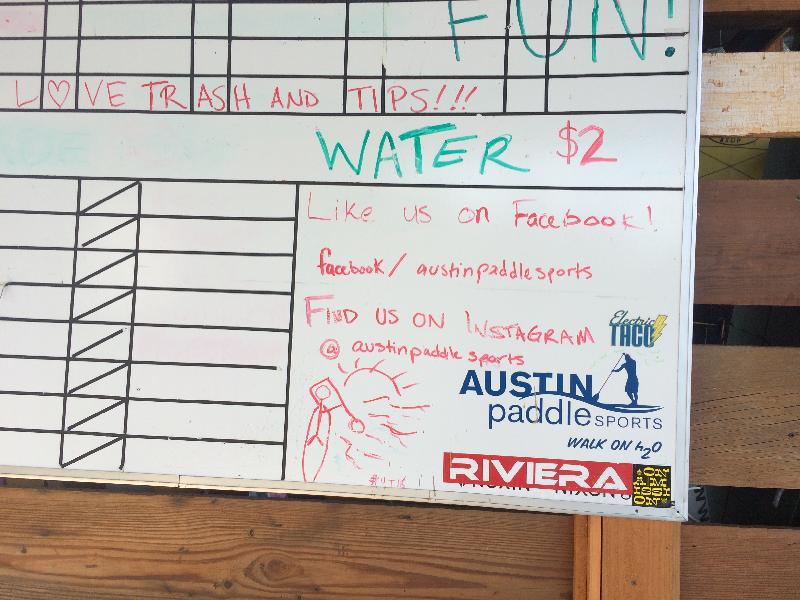 FUN!
L♡VE TRASH AND TIPS!!!
WATER $2
Like us on Facebook!
facebook/austinpaddlesports
FIND US ON INSTAGRAM
@austinpaddlesports
Electric
TACO
AUSTIN
paddleSPORTS
WALK ON h2O
RIVIERA
ON A MISSION